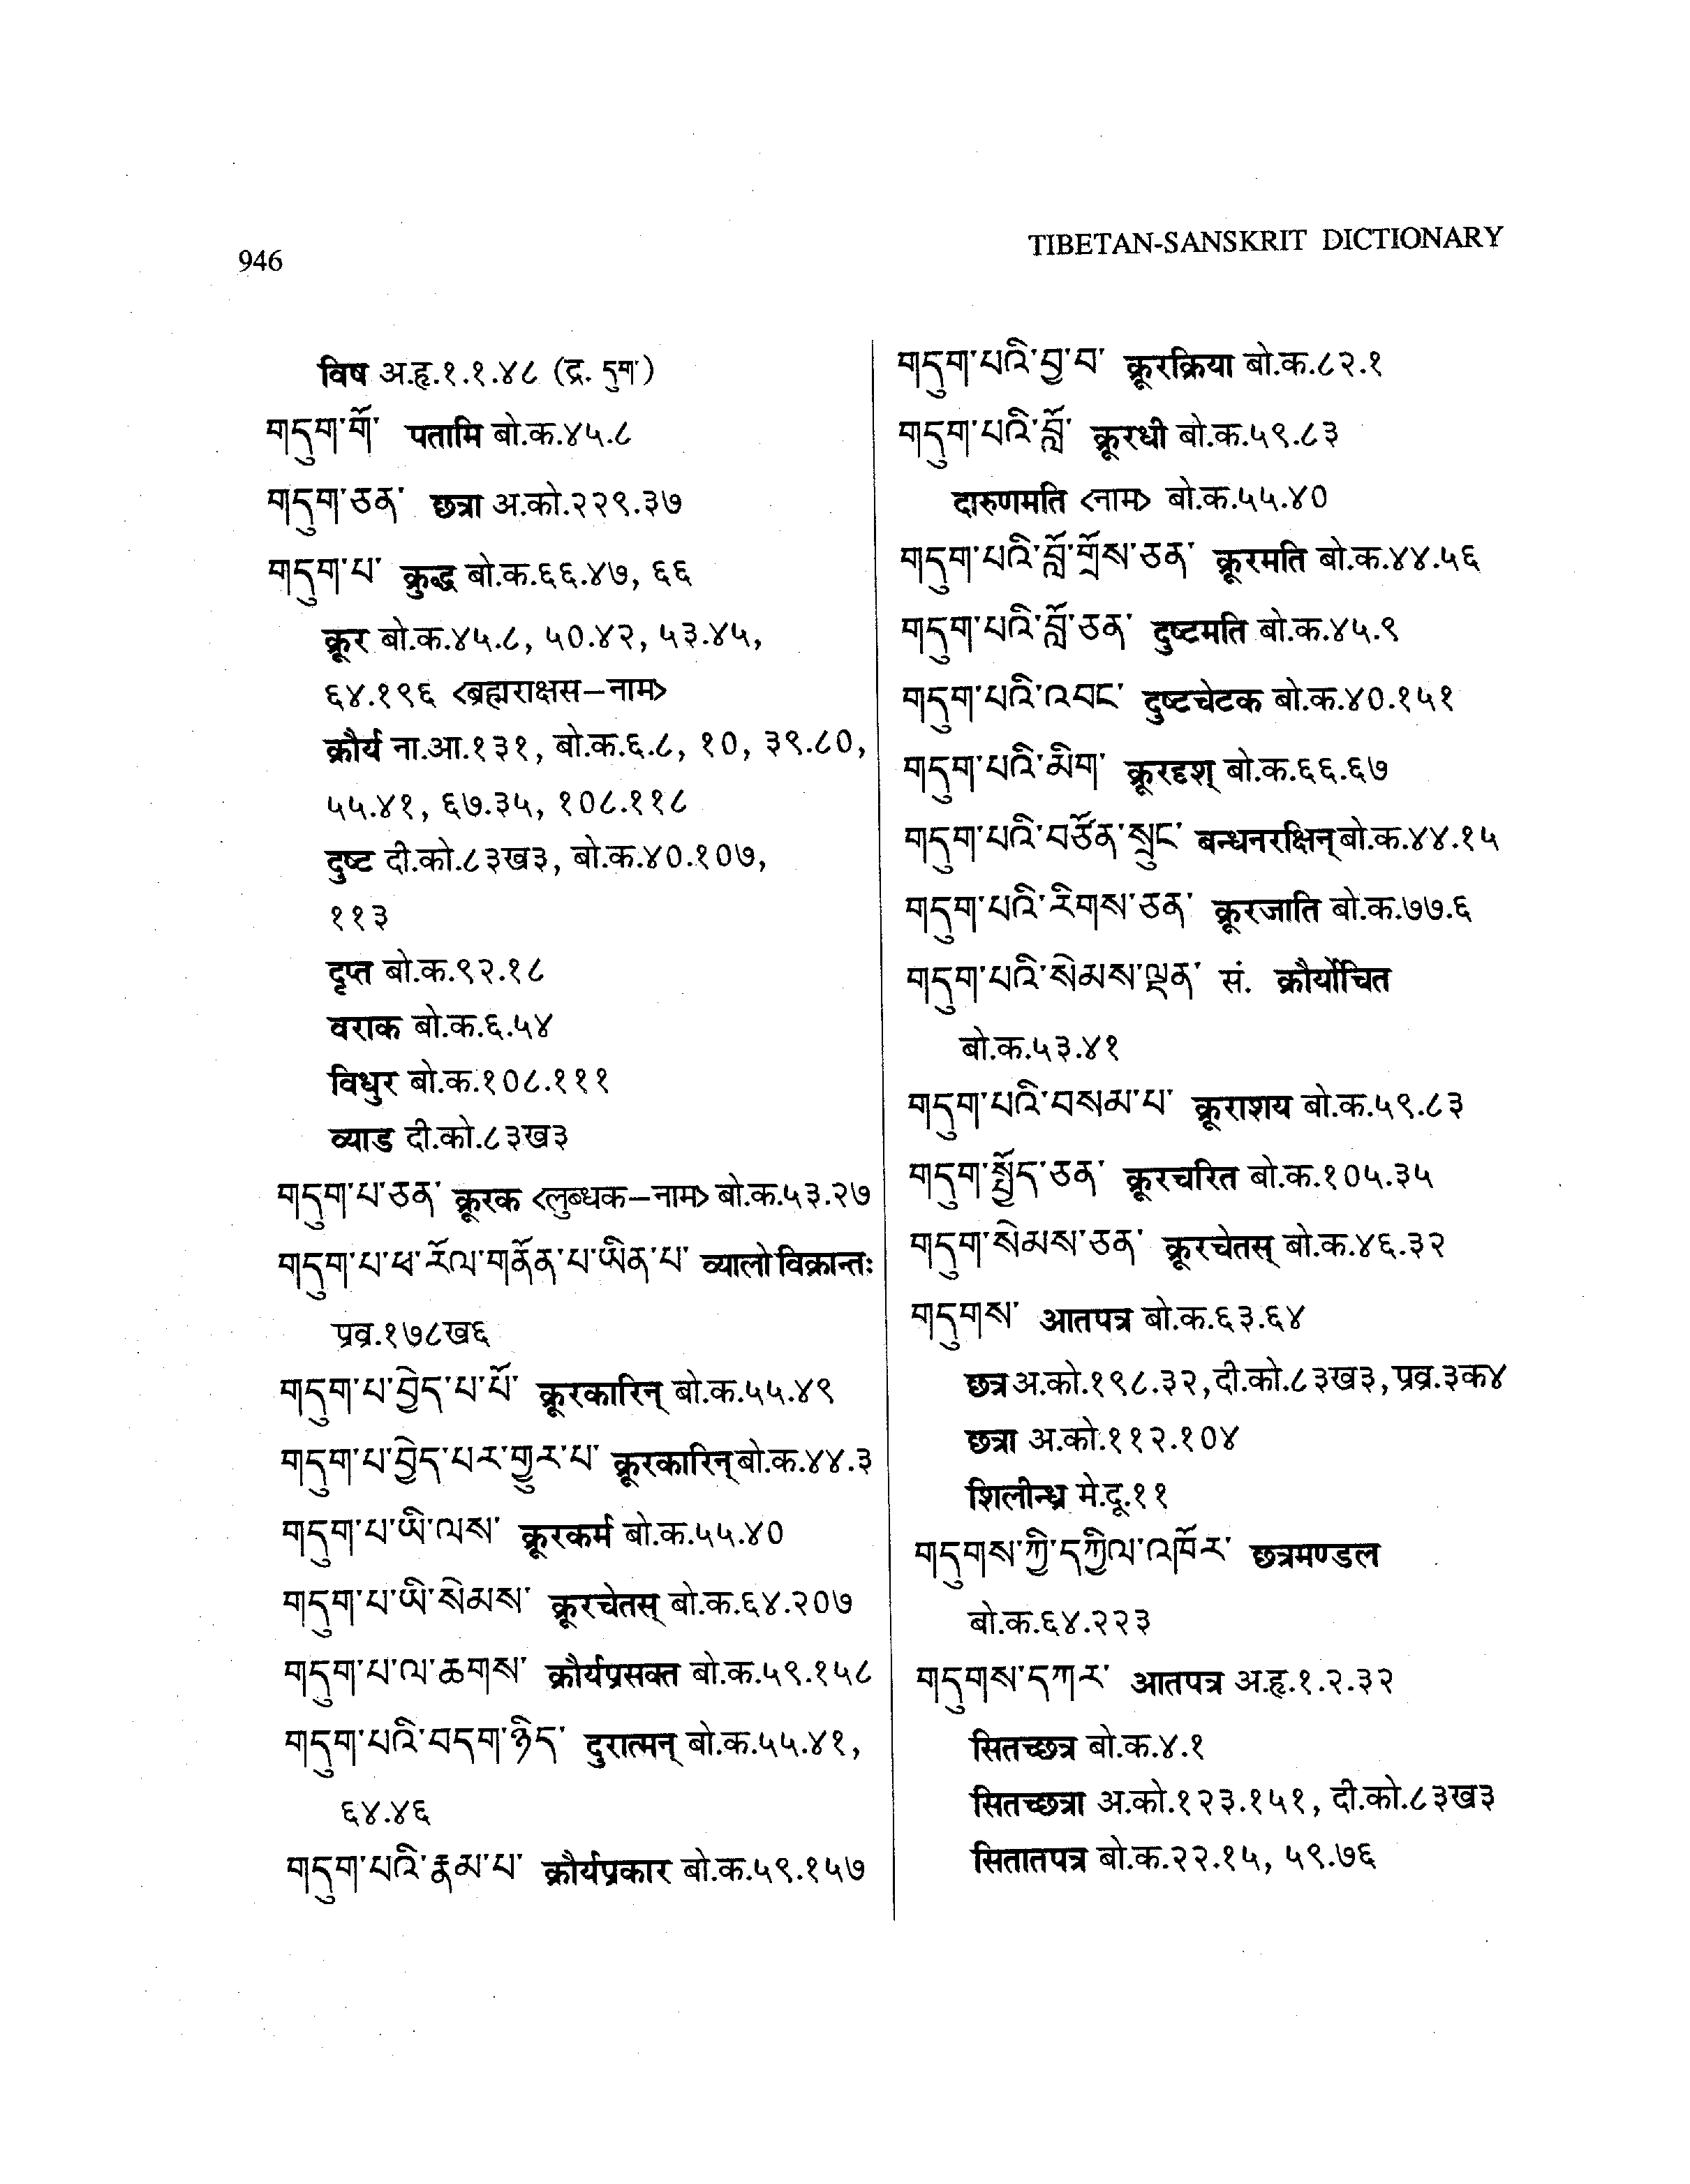 946
TIBETAN-SANSKRIT DICTIONARY
विष अ.हृ.१.१.४८ (द्र. དུག་)
གདུག་གོ་ पतामि बो.क.४५.८
གདུག་ཅན་ छत्रा अ.को.२२९.३७
གདུག་པ་ क्रुद्ध बो.क.६६.४७, ६६
क्रूर बो.क.४५.८, ५०.४२, ५३.४५,
६४.१९६ <ब्रह्मराक्षस–नाम>
क्रौर्य ना.आ.१३१, बो.क.६.८, १०, ३९.८०,
५५.४१, ६७.३५, १०८.११८
दुष्ट दी.को.८३ख३, बो.क.४०.१०७,
११३
दृप्त बो.क.९२.१८
वराक बो.क.६.५४
विधुर बो.क.१०८.१११
व्याड दी.को.८३ख३
གདུག་པ་ཅན་ क्रूरक <लुब्धक–नाम> बो.क.५३.२७
གདུག་པ་ཕ་རོལ་གནོན་པ་ཡིན་པ་ व्यालो विक्रान्तः
प्रव्र.१७८ख६
གདུག་པ་བྱེད་པ་པོ་ क्रूरकारिन् बो.क.५५.४९
གདུག་པ་བྱེད་པར་གྱུར་པ་ क्रूरकारिन् बो.क.४४.३
གདུག་པ་ཡི་ལས་ क्रूरकर्म बो.क.५५.४०
གདུག་པ་ཡི་སེམས་ क्रूरचेतस् बो.क.६४.२०७
གདུག་པ་ལ་ཆགས་ क्रौर्यप्रसक्त बो.क.५९.१५८
གདུག་པའི་བདག་ཉིད་ दुरात्मन् बो.क.५५.४१,
६४.४६
གདུག་པའི་རྣམ་པ་ क्रौर्यप्रकार बो.क.५९.१५७
གདུག་པའི་བྱ་བ་ क्रूरक्रिया बो.क.८२.१
གདུག་པའི་བློ་ क्रूरधी बो.क.५९.८३
दारुणमति <नाम> बो.क.५५.४०
གདུག་པའི་བློ་གྲོས་ཅན་ क्रूरमति बो.क.४४.५६
གདུག་པའི་བློ་ཅན་ दुष्टमति बो.क.४५.९
གདུག་པའི་འབང་ दुष्टचेटक बो.क.४०.१५१
གདུག་པའི་མིག་ क्रूरदृश् बो.क.६६.६७
གདུག་པའི་བཙོན་སྲུང་ बन्धनरक्षिन् बो.क.४४.१५
གདུག་པའི་རིགས་ཅན་ क्रूरजाति बो.क.७७.६
གདུག་པའི་སེམས་ལྡན་ सं. क्रौर्योचित
बो.क.५३.४१
གདུག་པའི་བསམ་པ་ क्रूराशय बो.क.५९.८३
གདུག་སྤྱོད་ཅན་ क्रूरचरित बो.क.१०५.३५
གདུག་སེམས་ཅན་ क्रूरचेतस् बो.क.४६.३२
གདུགས་ आतपत्र बो.क.६३.६४
छत्र अ.को.१९८.३२, दी.को.८३ख३, प्रव्र.३क४
छत्रा अ.को.११२.१०४
शिलीन्ध्र मे.दू.११
གདུགས་ཀྱི་དཀྱིལ་འཁོར་ छत्रमण्डल
बो.क.६४.२२३
གདུགས་དཀར་ आतपत्र अ.हृ.१.२.३२
सितच्छत्र बो.क.४.१
सितच्छत्रा अ.को.१२३.१५१, दी.को.८३ख३
सितातपत्र बो.क.२२.१५, ५९.७६